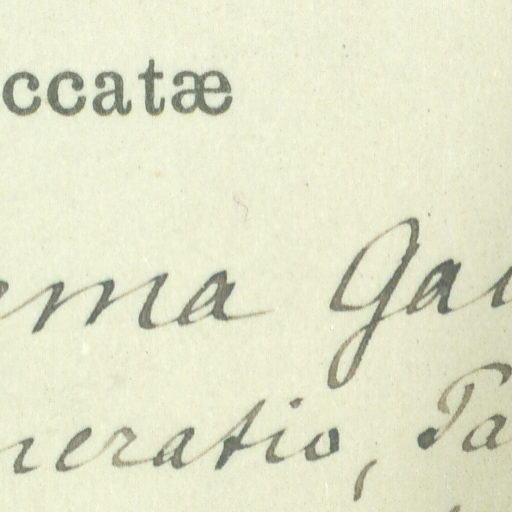 ccatæ
ma Gau
neratio, Pa